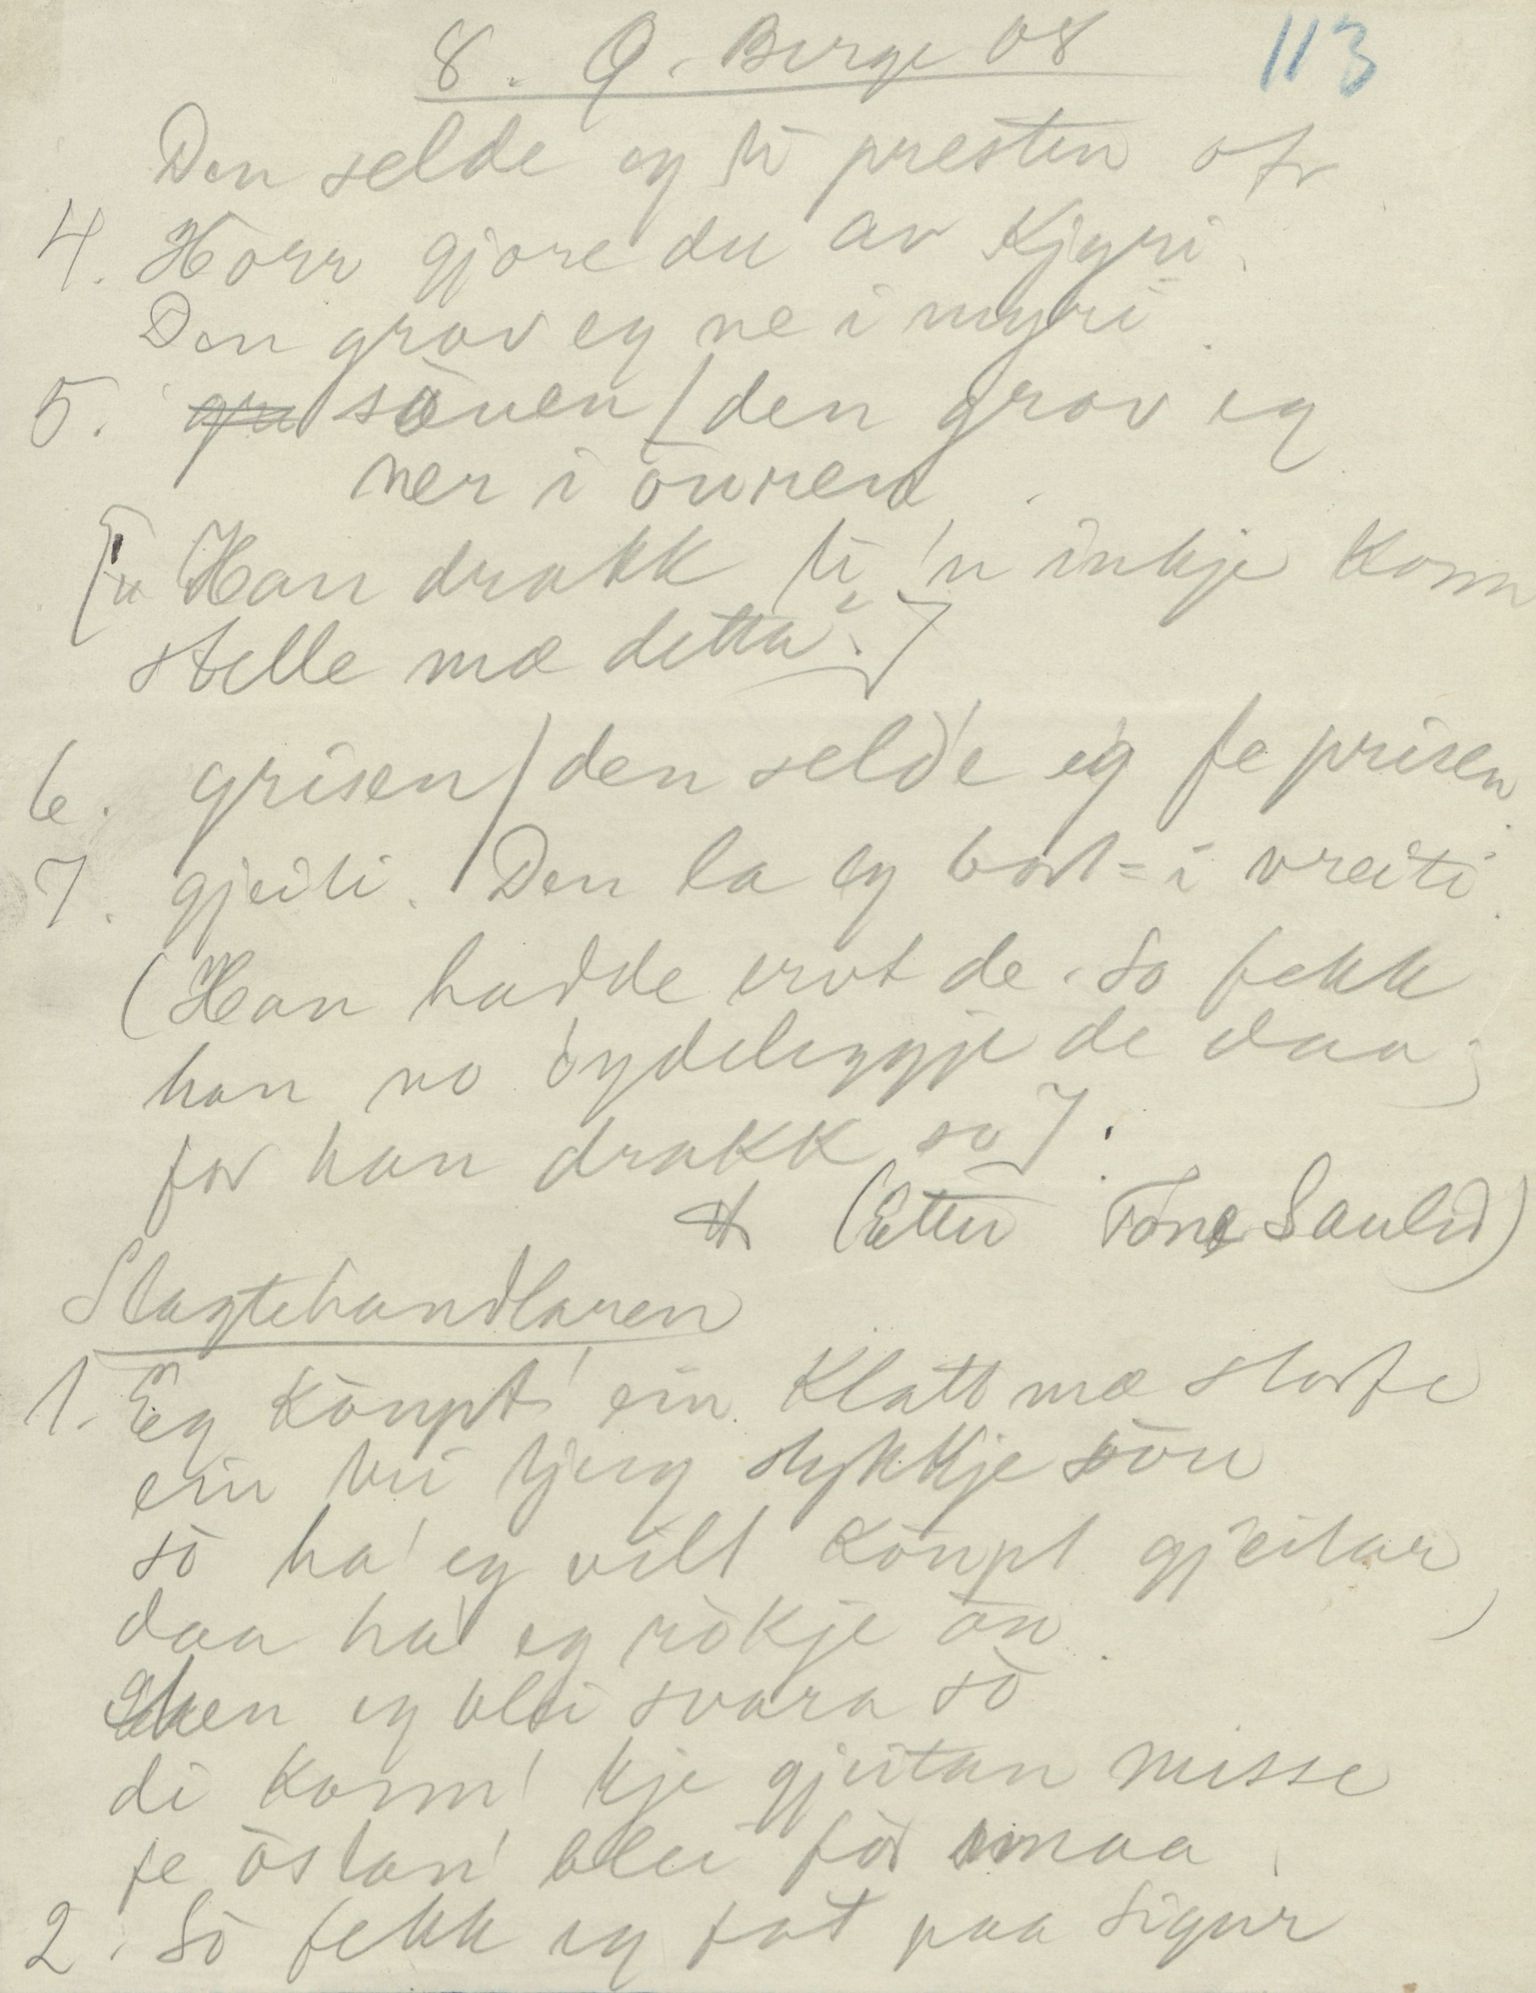 8. Q. Berge 08
113
Den selde eg ti presten
4. Horr gjore du av Kjyri.
Den grov eg ne i myri.
5. söuen / den grov eg
ner i öuren.
Han drakk ti 'n inkje konn
stelle mæ detta".]
6. grisen / den selde eg fe prisen.
7. gjeiti. Den la eg bort i vreiti.
(Han hadde ervt de. So fekk
han no öydeleggje de daa;
for han drakk so].
(Etter Tone Saulid)
Slagtehandlaren
1. Eg köupt' ein Klatt mæ
ein tri tjug stykkje söu
sò ha' eg vilt köupt gjeitar,
daa ha' eg rökje òu.
Men eg blei svara sò
di konn' kje gjeitan misse
fe östan' blei för smaa.
2. Sò fekk eg fat paa Sigur